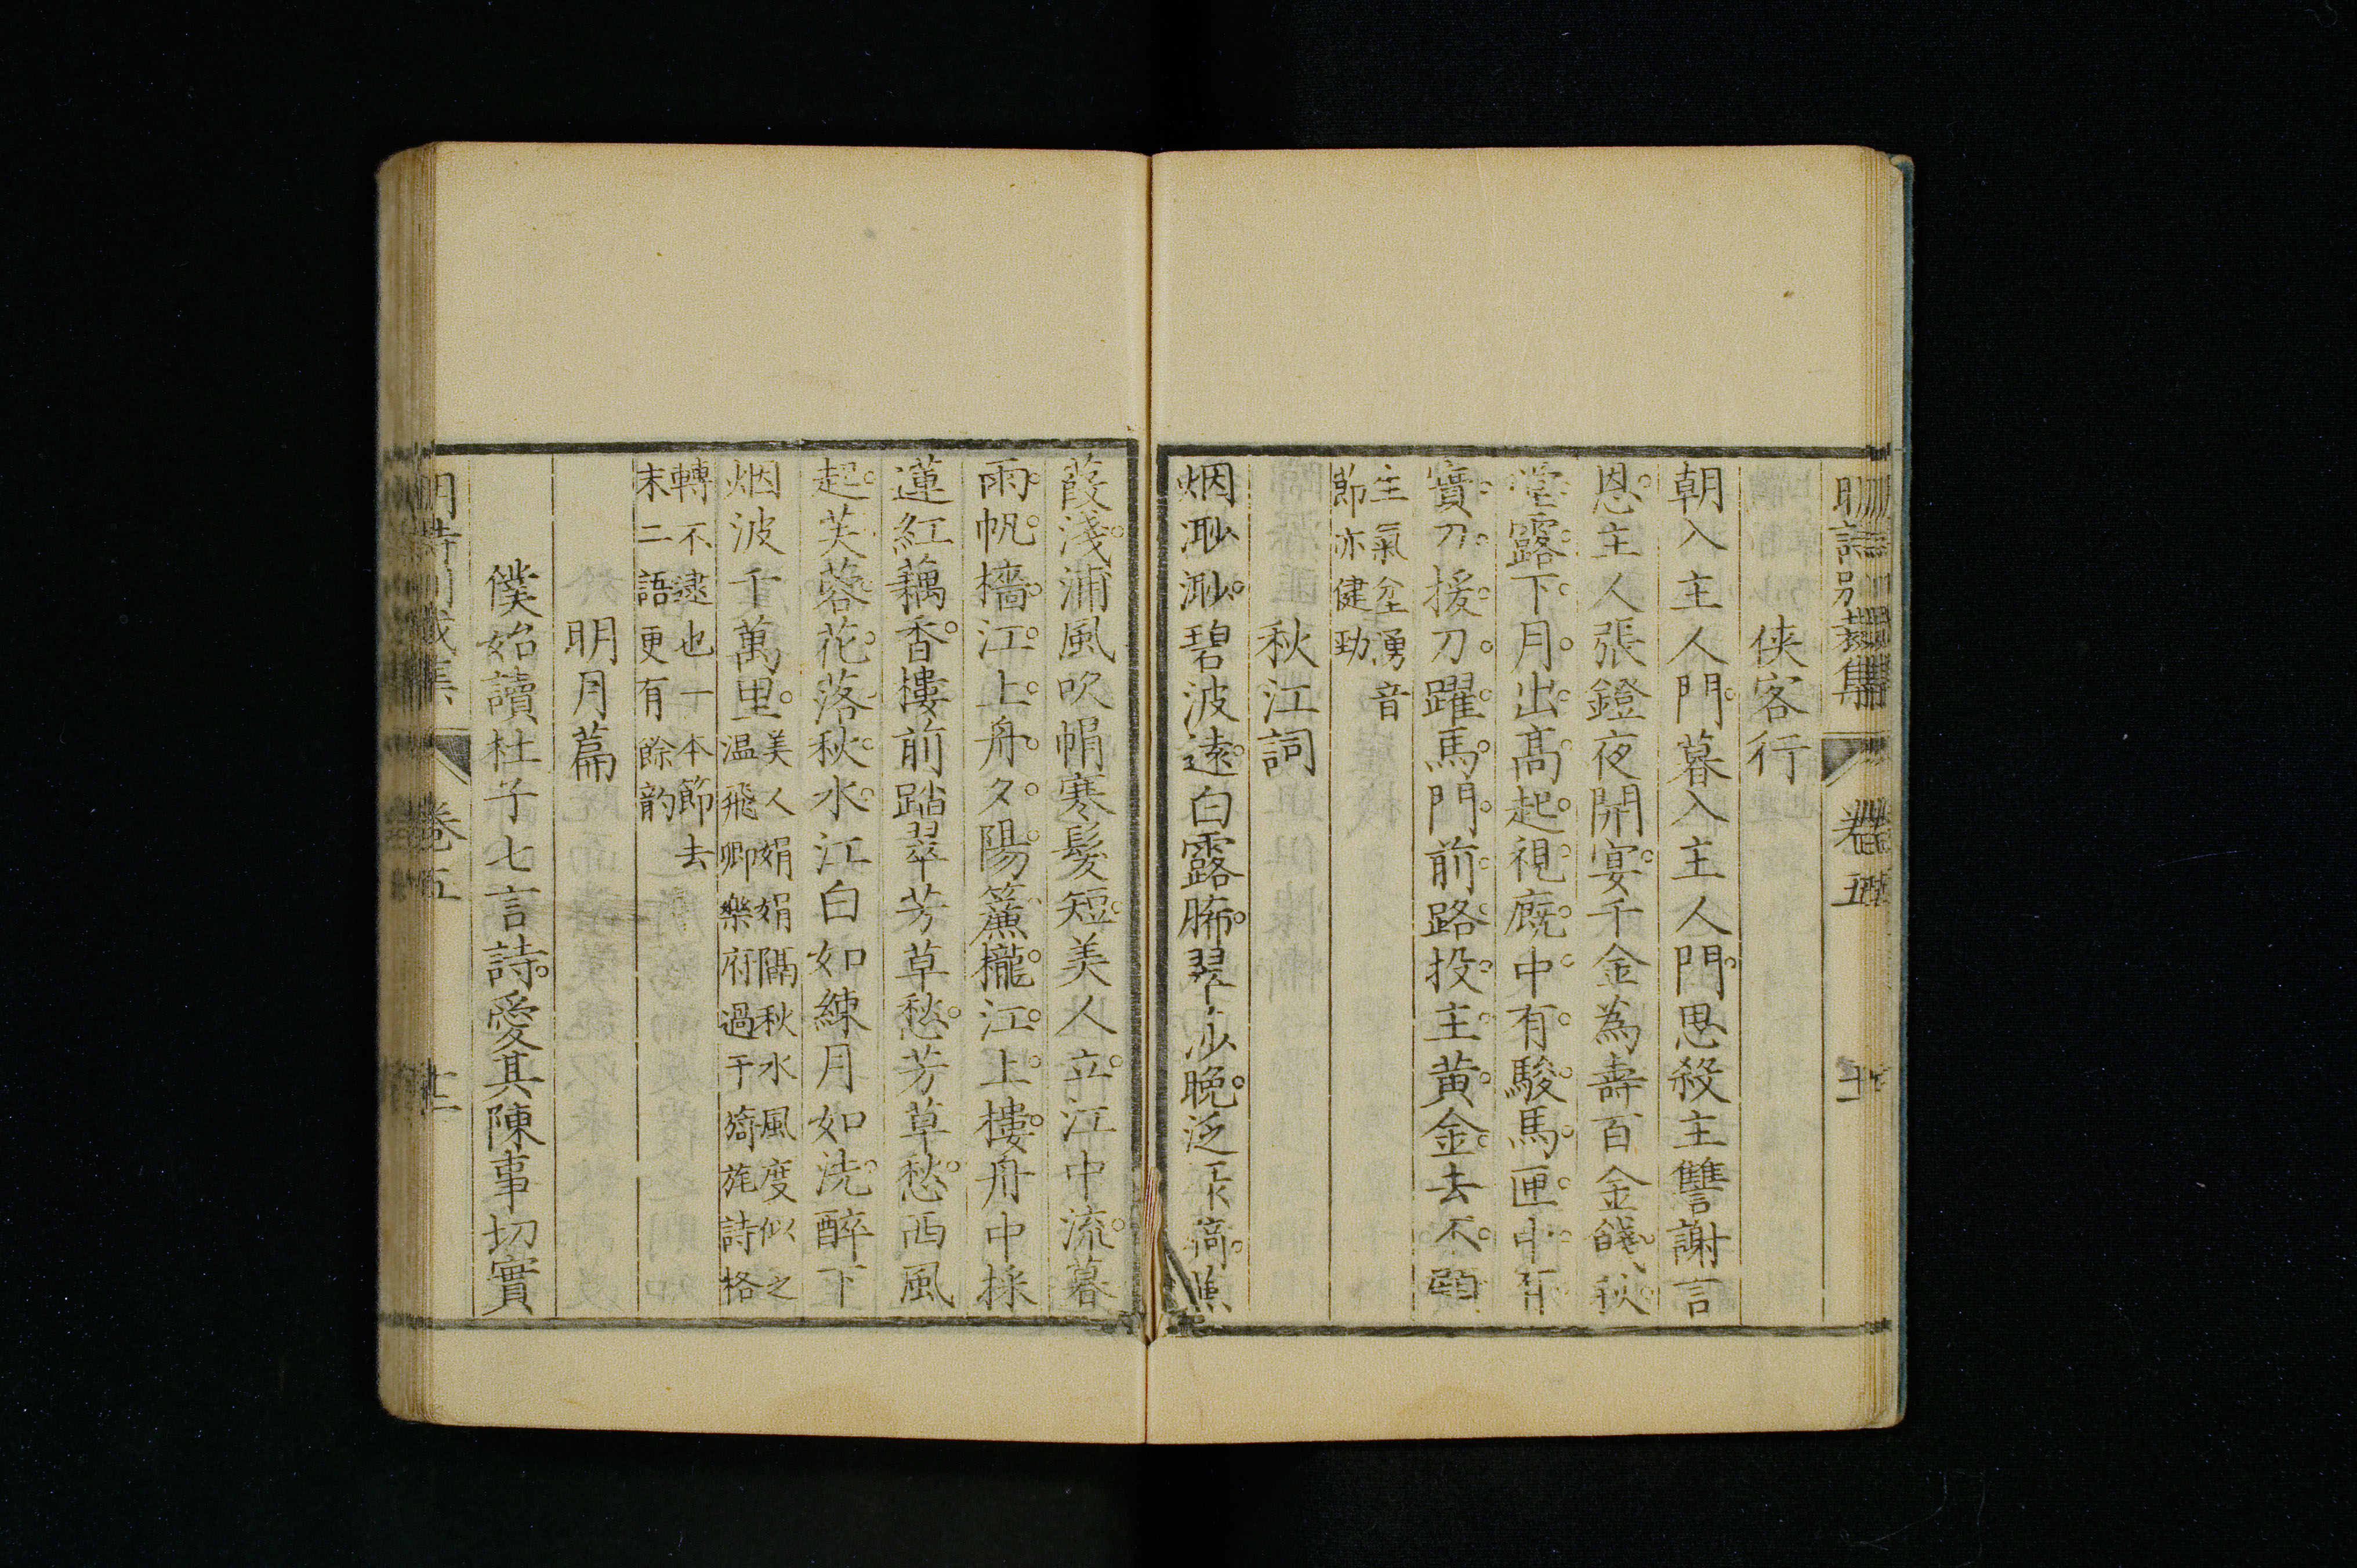 明詩別裁集 卷五
俠客行
朝入主人門暮入主人門思殺主讐謝言
恩主人張鐙夜開宴千金為壽百金餞秋
堂露下月出高起視廐中有駿馬匣中有
寶刀援刀躍馬門前路投主黃金去不顧
主氣坌湧音
節亦健勁
秋江詞
烟渺渺碧波遠白露晞翠莎晚泛綠漪蒹
葭淺浦風吹帽寒髮短美人立江中流暮
雨帆檣江上舟夕陽簾櫳江上樓舟中採
蓮紅藕香樓前踏翠芳草愁芳草愁西風
起芙蓉花落秋水江白如練月如洗醉下
烟波千萬里
美人娟娟隔秋水風度似之
温飛卿樂府過于旖旎詩格
轉不逮也一本節去
末二語更有餘韵
明月篇
僕始讀杜子七言詩愛其陳事切實
明詩別裁集 卷五